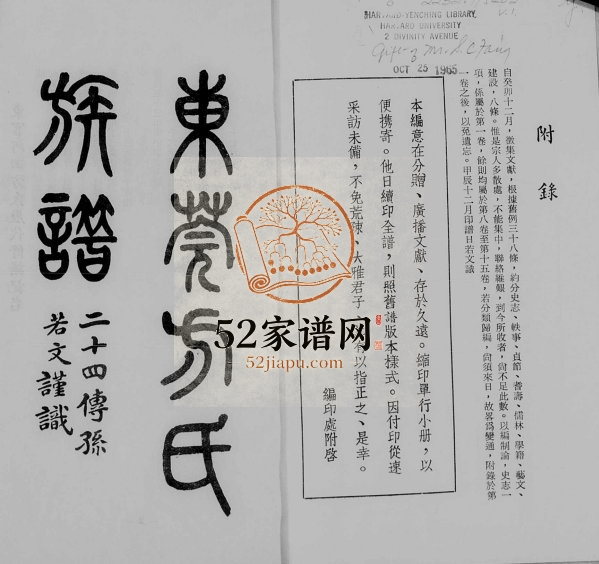 HARVARD-YENCHING LIBRARY
HARVARD UNIVERSITY
2 DIVINITY AVENUE
Gift of Mr. S. C. Fang
OCT 25 1965
V.1
附錄
自癸卯十二月，徵集文獻，根據舊例三十八條，約分史志、軼事、貞節、耆壽、儒林、學籍、藝文、
建設，八條。惟是宗人多散處，不能集中，聯絡維艱，到今所收者，尚不足此數。以編制論，史志一
項，係屬於第一卷，餘則均屬於第八卷至第十五卷，若分類歸編，尚須來日，故畧爲變通，附錄於第
一卷之後，以免遺忘。甲辰十二月印譜日若文誌
本編意在分贈、廣播文獻、存於久遠。縮印單行小册，以
便携寄。他日續印全譜，則照舊譜版本樣式。因付印從速
采訪未備，不免荒陋、大雅君子
有以指正之、是幸。
編印處附啓
東莞方氏
族譜
二十四傳孫
若文謹識
52家谱网
52jiapu.com